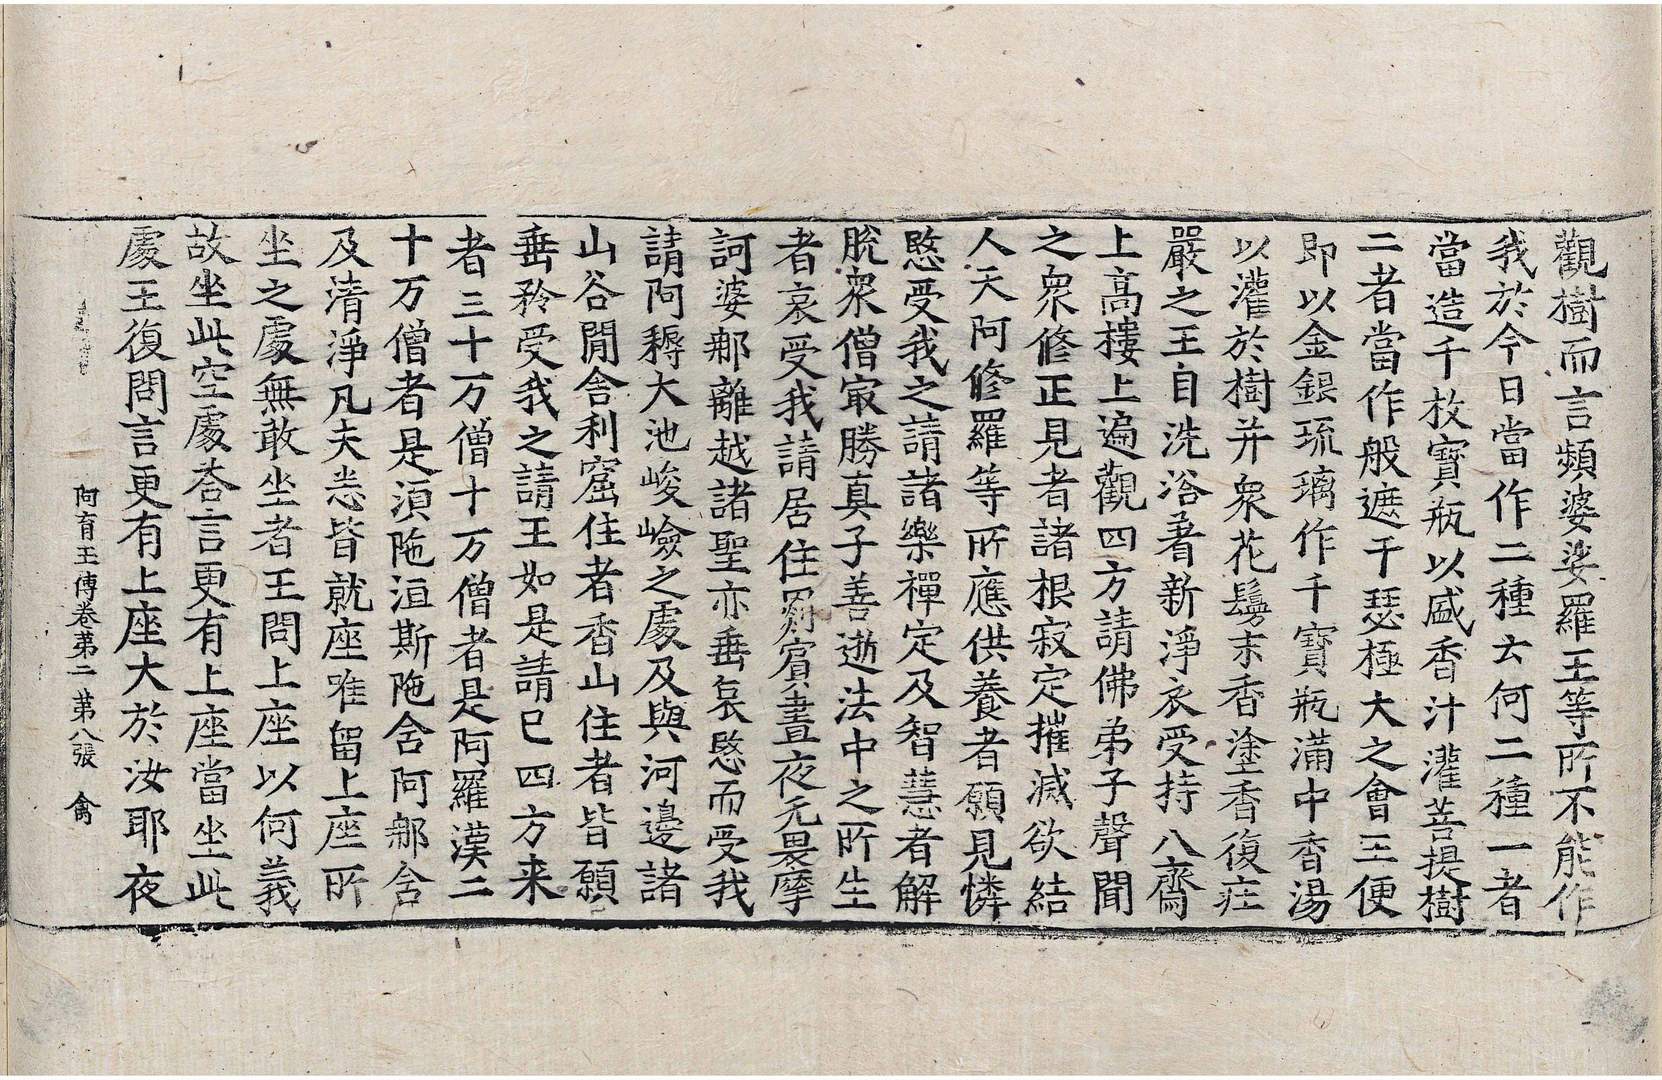 觀樹而言頻婆娑羅王等所不能作
我於今日當作二種云何二種一者
當造千枚寶瓶以盛香汁灌菩提樹
二者當作般遮于瑟極大之會王便
即以金銀琉璃作千寶瓶滿中香湯
以灌於樹并衆花鬘末香塗香復莊
嚴之王自洗浴著新淨衣受持八齋
上高樓上遍觀四方請佛弟子聲聞
之衆修正見者諸根寂定摧滅欲結
人天阿修羅等所應供養者願見憐
愍受我之請諸樂禪定及智慧者解
脫衆僧㝡勝真子善逝法中之所生
者哀受我請居住罽賓晝夜无畏摩
訶婆那離越諸聖亦垂哀愍而受我
請阿耨大池峻嶮之處及與河邊諸
山谷閒舍利窟住者香山住者皆願
垂矜受我之請王如是請已四方来
者三十万僧十万僧者是阿羅漢二
十万僧者是須陁洹斯陁含阿那含
及清淨凡夫悉皆就座唯留上座所
坐之處無敢坐者王問上座以何義
故坐此空處荅言更有上座當坐此
處王復問言更有上座大於汝耶夜
阿育王傳卷第二 第八張 禽